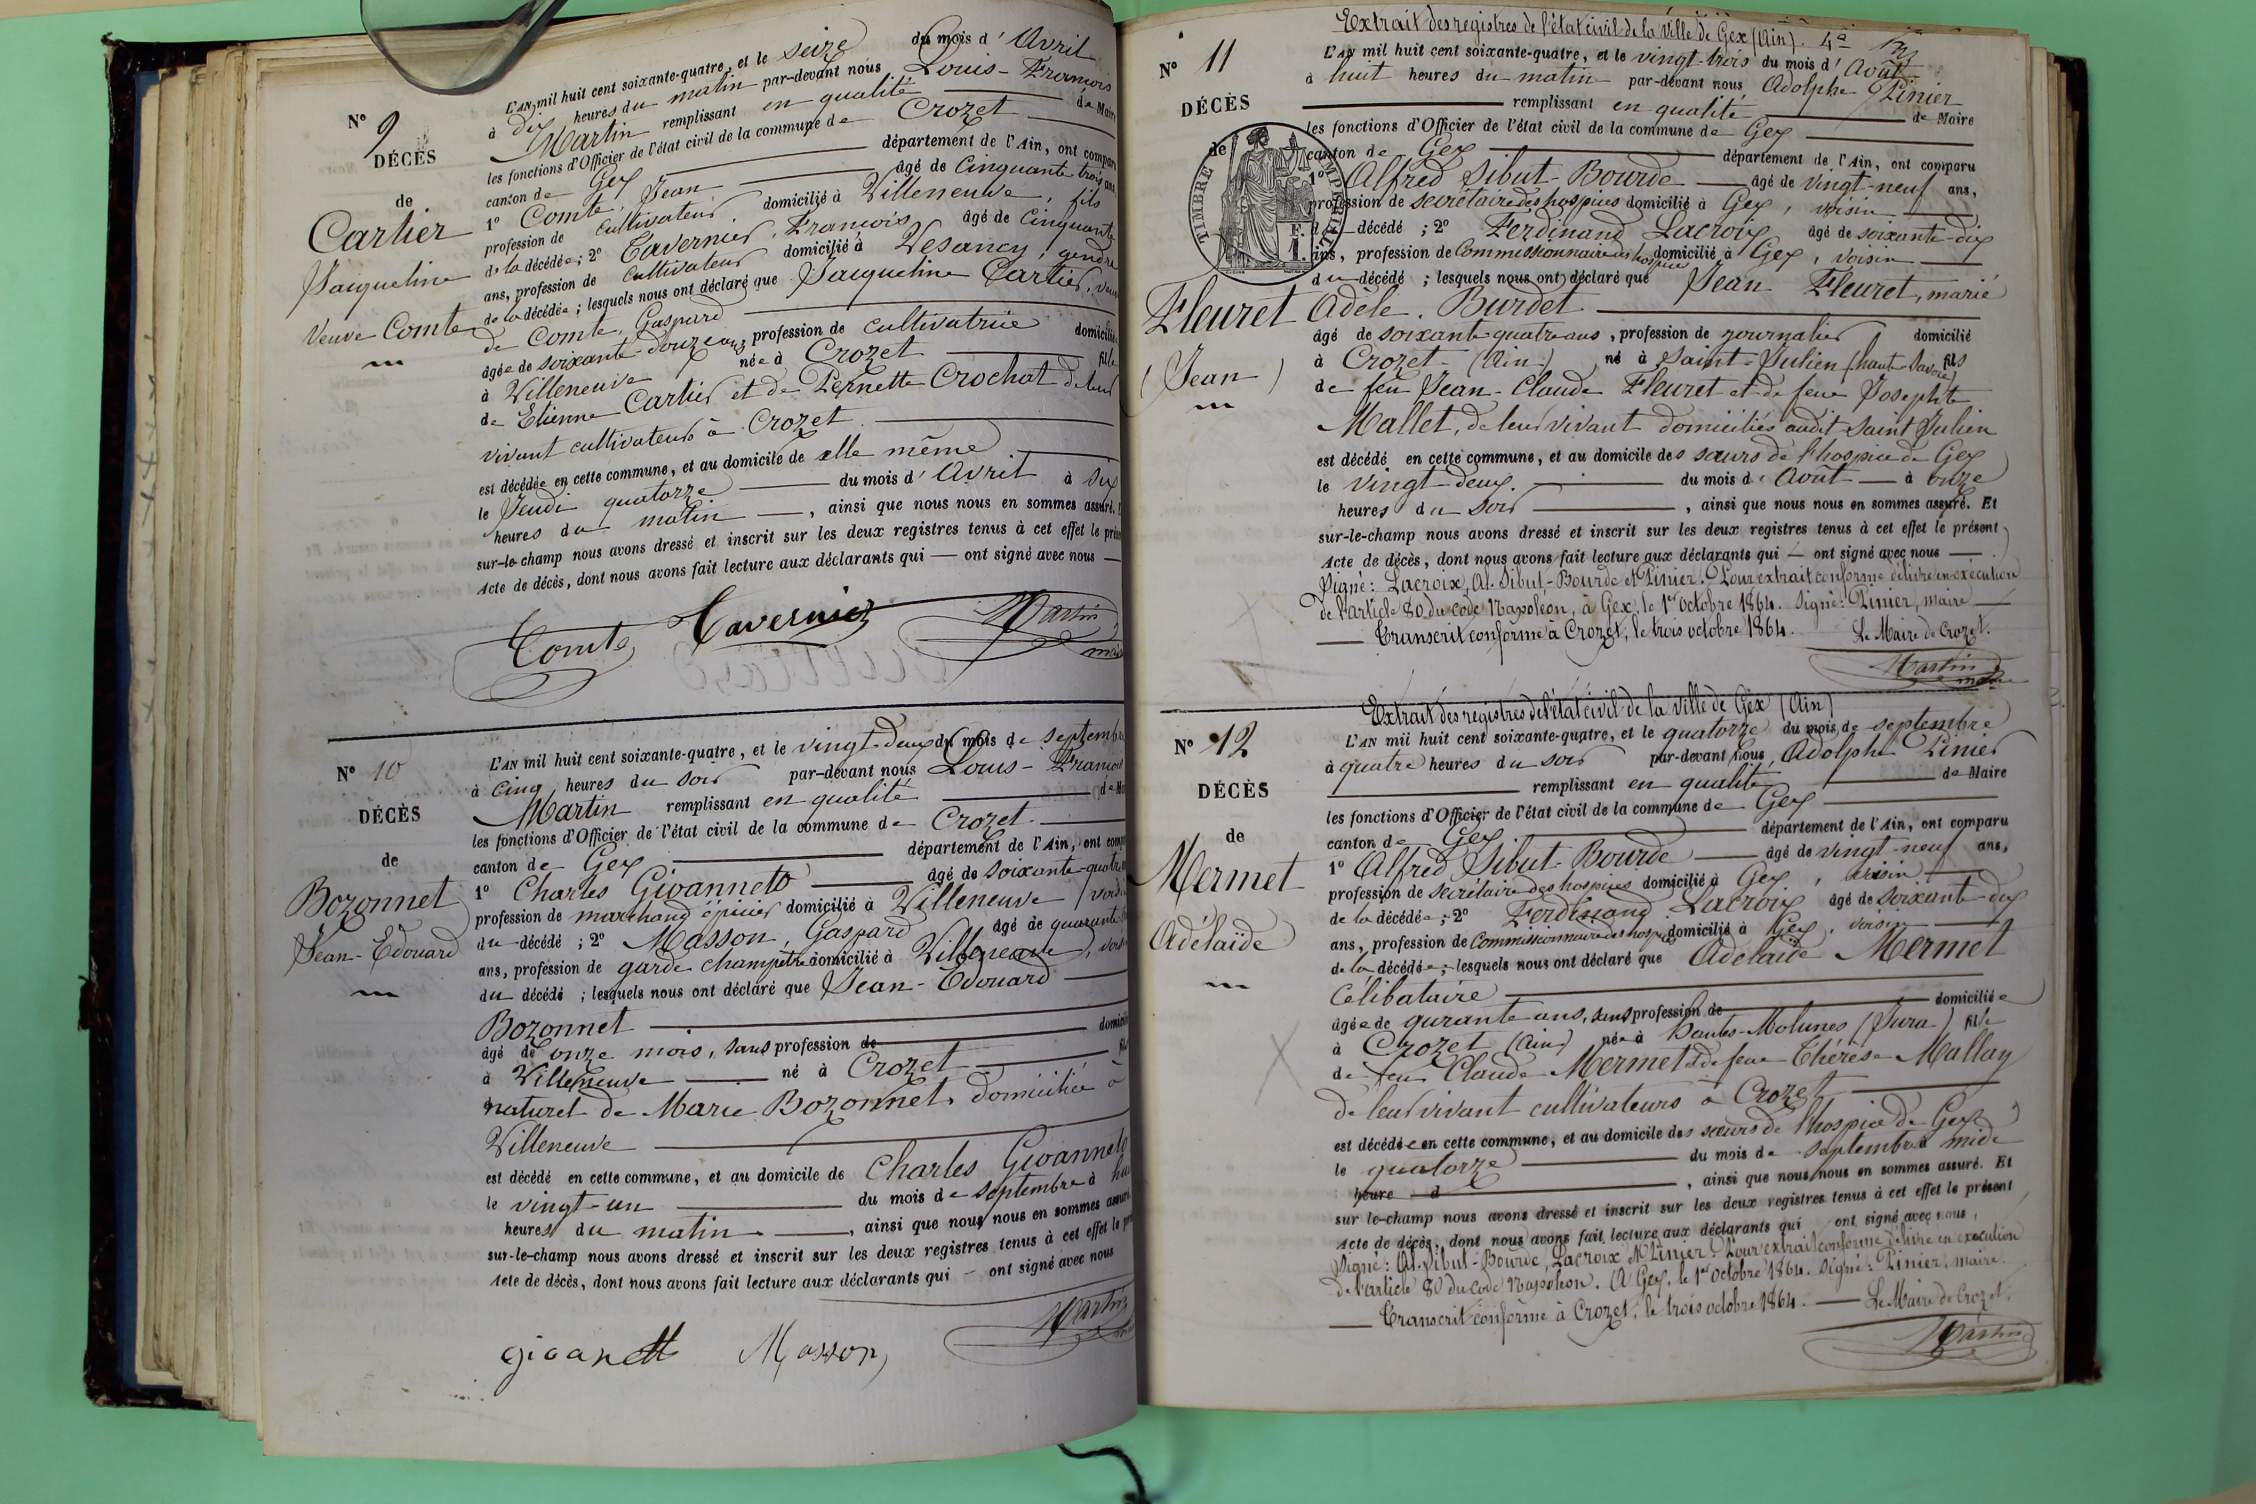 N° 9
DÉCÈS
de
Cartier
Jacqueline
Veuve Comte
L'AN mil huit cent soixante-quatre, et le seize du mois d'Avril
à dix heures du matin par-devant nous Louis-François
Martin remplissant en qualité de Maire
les fonctions d'Officier de l'état civil de la commune de Crozet
canton de Gex département de l'Ain, ont comparu
1° Comte, Jean âgé de cinquante trois ans
profession de cultivateur domicilié à Villeneuve, fils
de la décédée; 2° Tavernier, François âgé de cinquante
ans, profession de cultivateur domicilié à Vesancy, gendre
de la décédée; lesquels nous ont déclaré que Jacqueline Cartier, veuve
de Comte, Gaspard
âgée de soixante-douze ans, profession de cultivatrice domiciliée
à Villeneuve née à Crozet fille
de Etienne Cartier et de Pernette Crochat de leur
vivant cultivateurs à Crozet
est décédée en cette commune, et au domicile de elle même
le Jeudi quatorze du mois d'Avril à six
heures du matin, ainsi que nous nous en sommes assuré.
sur-le-champ nous avons dressé et inscrit sur les deux registres tenus à cet effet le
Acte de décès, dont nous avons fait lecture aux déclarants qui — ont signé avec nous —
Comte Tavernier Martin
N° 10
DÉCÈS
de
Bozonnet
Jean-Edouard
L'AN mil huit cent soixante-quatre, et le vingt-deux du mois de septembre
à cinq heures du soir par-devant nous Louis-François
Martin remplissant en qualité de
les fonctions d'Officier de l'état civil de la commune de Crozet
canton de Gex département de l'Ain, ont
1° Charles Giovanneto âgé de soixante-quatre
profession de marchand épicier domicilié à Villeneuve
du décédé; 2° Masson, Gaspard âgé de quarante
ans, profession de garde champêtre domicilié à Villeneuve,
du décédé; lesquels nous ont déclaré que Jean-Edouard
Bozonnet
âgé de onze mois, sans profession de
à Villeneuve né à Crozet
naturel de Marie Bozonnet domiciliée à
Villeneuve
est décédé en cette commune, et au domicile de Charles
le vingt-un du mois de septembre à
heures du matin, ainsi que nous nous en sommes assuré
sur-le-champ nous avons dressé et inscrit sur les deux registres tenus à cet effet le
Acte de décès, dont nous avons fait lecture aux déclarants qui — ont signé avec nous
gioanett Masson Martin
Extrait des registres de l'état civil de la ville de Gex (Ain).
N° 11
DÉCÈS
de
TIMBRE IMPÉRIAL
Fleuret
(Jean)
L'AN mil huit cent soixante-quatre, et le vingt-trois du mois d'Août
à huit heures du matin par-devant nous Adolphe Pinier
remplissant en qualité de Maire
les fonctions d'Officier de l'état civil de la commune de Gex
canton de Gex département de l'Ain, ont comparu
1° Alfred Sibut-Bourde âgé de vingt-neuf ans,
profession de secrétaire des hospices domicilié à Gex, voisin
du décédé; 2° Ferdinand Lacroix âgé de soixante-dix
ans, profession de Commissionnaire des hospices domicilié à Gex, voisin
du décédé; lesquels nous ont déclaré que Jean Fleuret, marié
Adèle Burdet
âgé de soixante-quatre ans, profession de journalier domicilié
à Crozet (Ain) né à Saint-Julien (haute-Savoie) fils
de feu Jean-Claude Fleuret et de feue Josephte
Mallet, de leur vivant domiciliés audit Saint Julien
est décédé en cette commune, et au domicile des sœurs de l'hospice de Gex
le vingt-deux du mois d'Août à onze
heures du soir, ainsi que nous nous en sommes assuré. Et
sur-le-champ nous avons dressé et inscrit sur les deux registres tenus à cet effet le présent
Acte de décès, dont nous avons fait lecture aux déclarants qui — ont signé avec nous —.
Signé: Lacroix, Al. Sibut-Bourde et Pinier. Pour extrait conforme délivré en exécution
de l'article 80 du code Napoléon, à Gex, le 1er octobre 1864. Signé: Pinier, maire —
— Transcrit conforme à Crozet, le trois octobre 1864. Le Maire de Crozet.
Martin
Extrait des registres de l'état civil de la ville de Gex (Ain)
N° 12
DÉCÈS
de
Mermet
Adélaïde
L'AN mil huit cent soixante-quatre, et le quatorze du mois de septembre
à quatre heures du soir par-devant nous, Adolphe Pinier
remplissant en qualité de Maire
les fonctions d'Officier de l'état civil de la commune de Gex
canton de Gex département de l'Ain, ont comparu
1° Alfred Sibut-Bourde âgé de vingt-neuf ans,
profession de secrétaire des hospices domicilié à Gex, voisin
de la décédée; 2° Ferdinand Lacroix âgé de soixante-dix
ans, profession de Commissionnaire des hospices domicilié à Gex, voisin
de la décédée; lesquels nous ont déclaré que Adélaïde Mermet
célibataire
âgée de qurante ans, sans profession de domiciliée
à Crozet (Ain) née à Hautes-Molunes (Jura) fille
de feu Claude Mermet et de feue Thérèse Mallay
de leur vivant cultivateurs à Crozet
est décédée en cette commune, et au domicile des sœurs de l'hospice de Gex
le quatorze du mois de septembre à midi
heure d, ainsi que nous nous en sommes assuré. Et
sur le-champ nous avons dressé et inscrit sur les deux registres tenus à cet effet le présent
Acte de décès, dont nous avons fait lecture aux déclarants qui ont signé avec nous,
Signé: Al. Sibut-Bourde, Lacroix et Pinier. Pour extrait conforme délivré en exécution
de l'article 80 du code Napoléon. A Gex, le 1er octobre 1864. Signé: Pinier, maire.
— Transcrit conforme à Crozet, le trois octobre 1864. — Le Maire de Crozet.
Martin